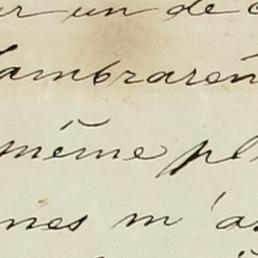 ur un de c
Cambraren
même pl
nes m'a